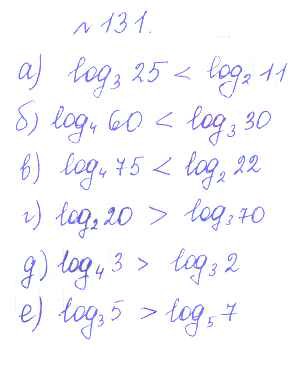 № 131.
а) log₃ 25 < log₂ 11
б) log₄ 60 < log₃ 30
в) log₄ 75 < log₂ 22
г) log₂ 20 > log₃ 70
д) log₄ 3 > log₃ 2
е) log₃ 5 > log₅ 7